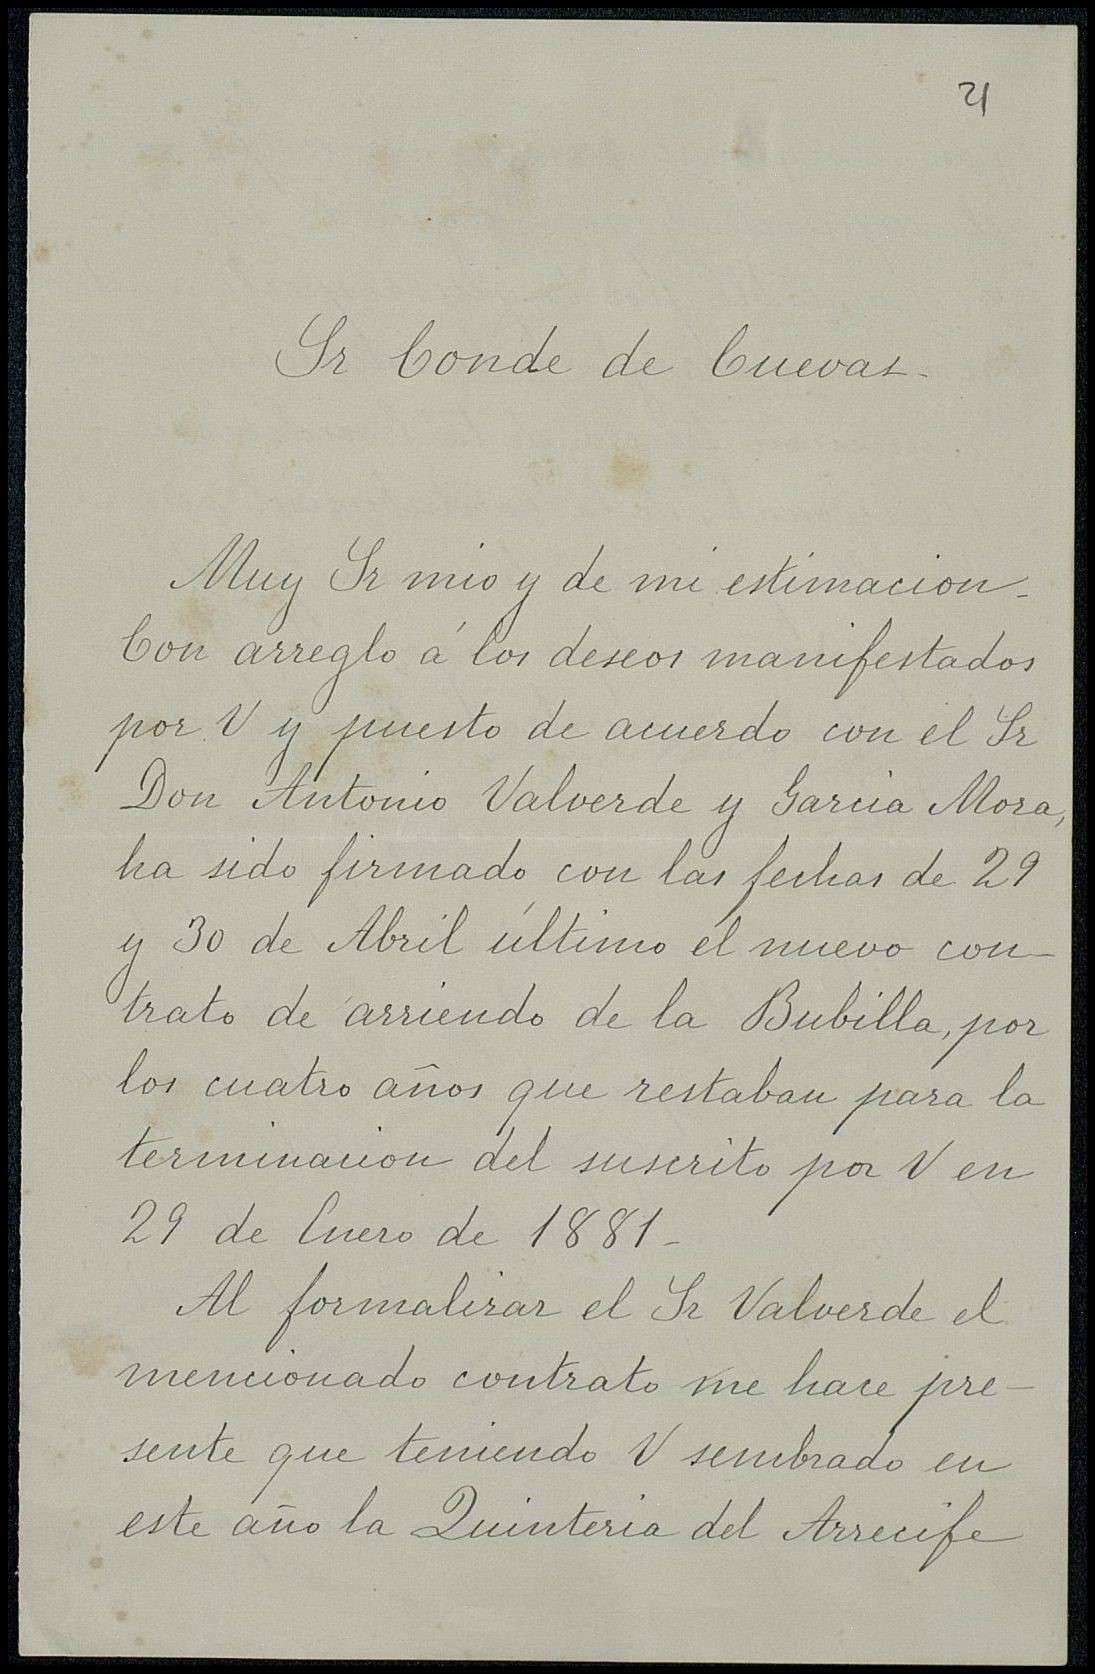 21
Sr Conde de Cuevas.
Muy Sr mio y de mi estimacion_
Con arreglo á los deseos manifestados
por V y puesto de acuerdo con el Sr
Don Antonio Valverde y Garcia Mora,
ha sido firmado, con las fechas de 29
y 30 de Abril último el nuevo con-
trato de arriendo de la Bubilla, por
los cuatro años que restaban para la
terminacion del suscrito por V en
29 de Enero de 1881_
Al formalizar el Sr Valverde el
mencionado contrato me hace pre-
sente que teniendo V sembrado en
este año la Quinteria del Arrecife